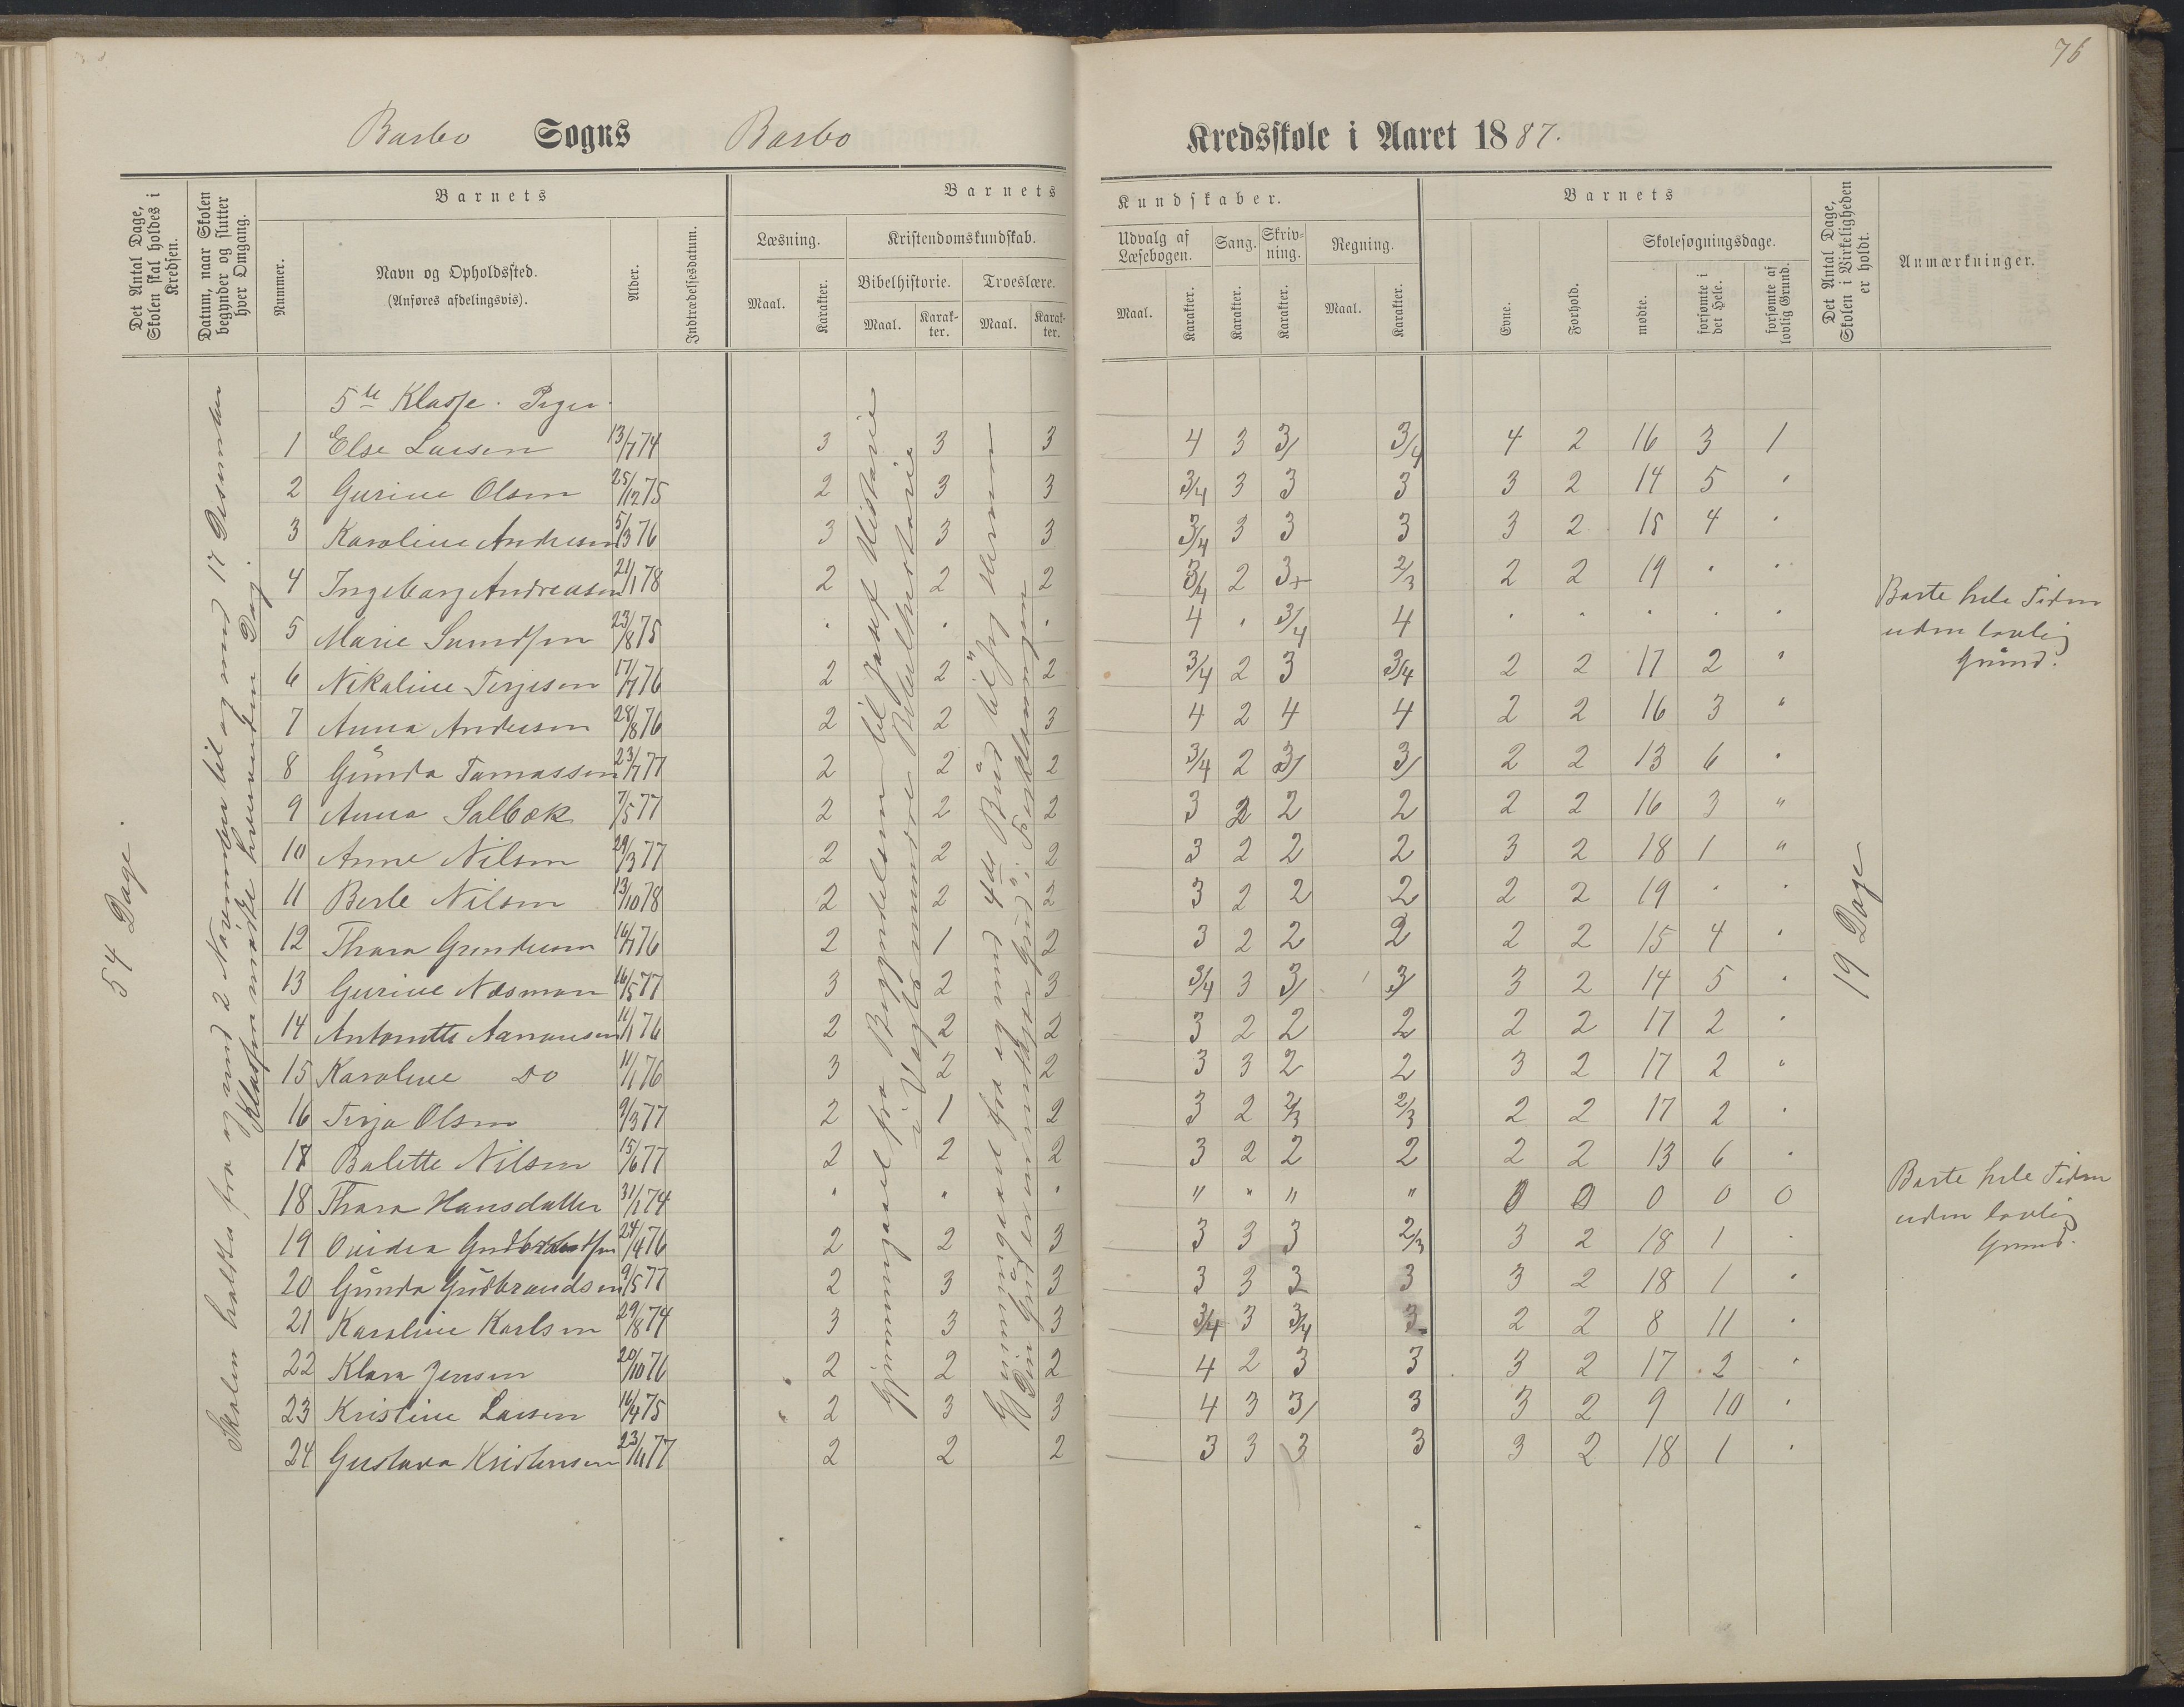 76
Barbo Sogns Barbo Kredsskole i Aaret 1887.
Det Antal Dage, Skolen skal holdes i Kredsen.
Datum, naar Skolen begynder og slutter hver Omgang.
Nummer.
Barnets
Navn og Opholdssted.
(Anføres afdelingsvis).
Alder.
Indtrædelsesdatum.
Barnets Kundskaber.
Læsning.
Maal.
Karakter.
Kristendomskundskab.
Bibelhistorie.
Maal.
Karakter.
Troeslære.
Maal.
Karakter.
Udvalg af Læsebogen.
Maal.
Karakter.
Sang.
Karakter.
Skrivning.
Karakter.
Regning.
Maal.
Karakter.
Barnets
Evne.
Forhold.
Skolesøgningsdage.
mødte.
forsømte i det Hele.
forsømte af lovlig Grund.
Det Antal Dage, Skolen i Virkeligheden er holdt.
Anmærkninger.
54 Dage.
Skolen holdtes fra og med 2 November til og med 17 Desember
Klassen mødte hverandn Dag.
Gjennemgaaet fra Begyndelsen til Josef Historie
i Vogts mindre Bibelhistorie
Gjennemgaaet fra og med 4de Bud til
19 Dage
5te Klasse. Piger.
1 Else Larsen 13/7 74 3 3 3 4 3 3/ 3/4 4 2 16 3 1
2 Gurine Olsen 25/12 75 2 3 3 3/4 3 3 3 3 2 14 5 "
3 Karoline Andresen 5/3 76 3 3 3 3/4 3 3 3 3 2 15 4 "
4 Ingeborg Andreasen 21/1 78 2 2 2 3/4 2 3+ 2/3 2 2 19 " "
5 Marie Sundsen 23/8 75 " " " 4 " 3/4 4 " " " " " Borte hele Tiden
uden lovlig
Grund.
6 Nikoline Terjesen 17/7 76 2 2 2 3/4 2 3 3/4 2 2 17 2 "
7 Anna Andersen 28/8 76 2 2 3 4 2 4 4 2 2 16 3 "
8 Gunda Tomassen 23/7 77 2 2 2 3/4 2 3/ 3/ 2 2 13 6 "
9 Anna Salbok 7/5 77 2 2 2 3 2 2 2 2 2 16 3 "
10 Anne Nilsen 29/3 77 2 2 2 3 2 2 2 3 2 18 1 "
11 Berle Nilsen 13/10 78 2 2 2 3 2 2 2 2 2 19 " "
12 Thora Gundersen 16/7 76 2 1 2 3 2 2 2 2 2 15 4 "
13 Gurine Næsman 16/5 77 3 2 3 3/4 3 3/ 3/ 3 2 14 5 "
14 Antonette Aanonsen 11/1 76 2 2 2 3 2 2 2 2 2 17 2 "
15 Karoline Do 11/1 76 3 2 2 3 3 2 2 3 2 17 2 "
16 Terja Olsen 9/3 77 2 1 2 3 2 2/3 2/3 2 2 17 2 "
17 Bolette Nilsen 15/6 77 2 2 2 3 2 2 2 2 2 13 6 "
18 Thora Hansdatter 31/1 74 " " " " " " " 0 0 0 0 0 Borte hele Tiden
uden lovlig
Grund.
19 Ovidia Gudbrandsen 24/4 76 2 2 3 3 3 3 2/3 3 2 18 1 "
20 Gunda Gudbrandsen 9/5 77 2 3 3 3 3 3 3 3 2 18 1 "
21 Karoline Karlsen 29/8 74 3 3 3 3/4 3 3/4 3 2 2 8 11 "
22 Klara Jensen 20/10 76 2 2 2 4 2 3 3 3 2 17 2 "
23 Kristine Larsen 16/4 75 2 3 3 4 3 3/ 3 3 2 9 10 "
24 Gustava Kristensen 23/11 77 2 2 2 3 3 3 3 3 2 18 1 "